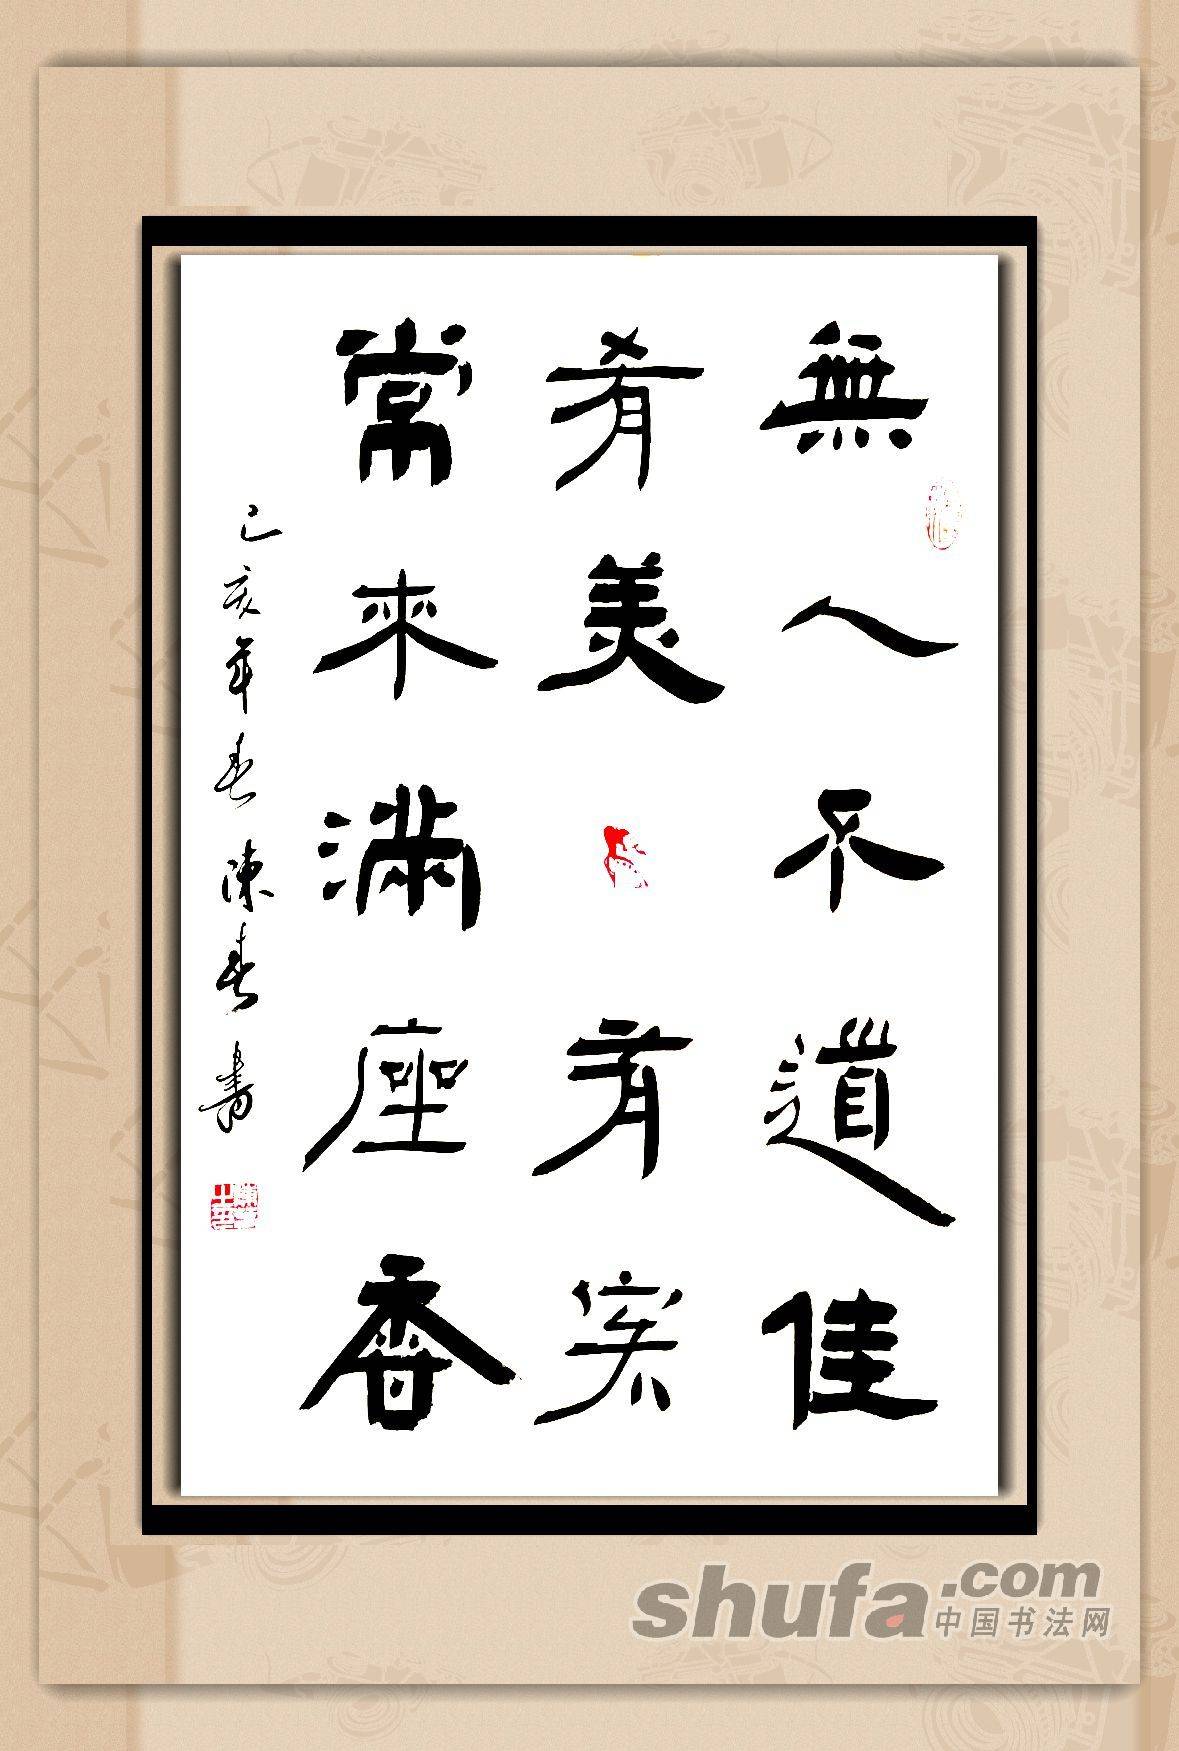 無人不道佳
肴美有客
常來滿座香
己亥年春陳春書
shufa.com
中国书法网